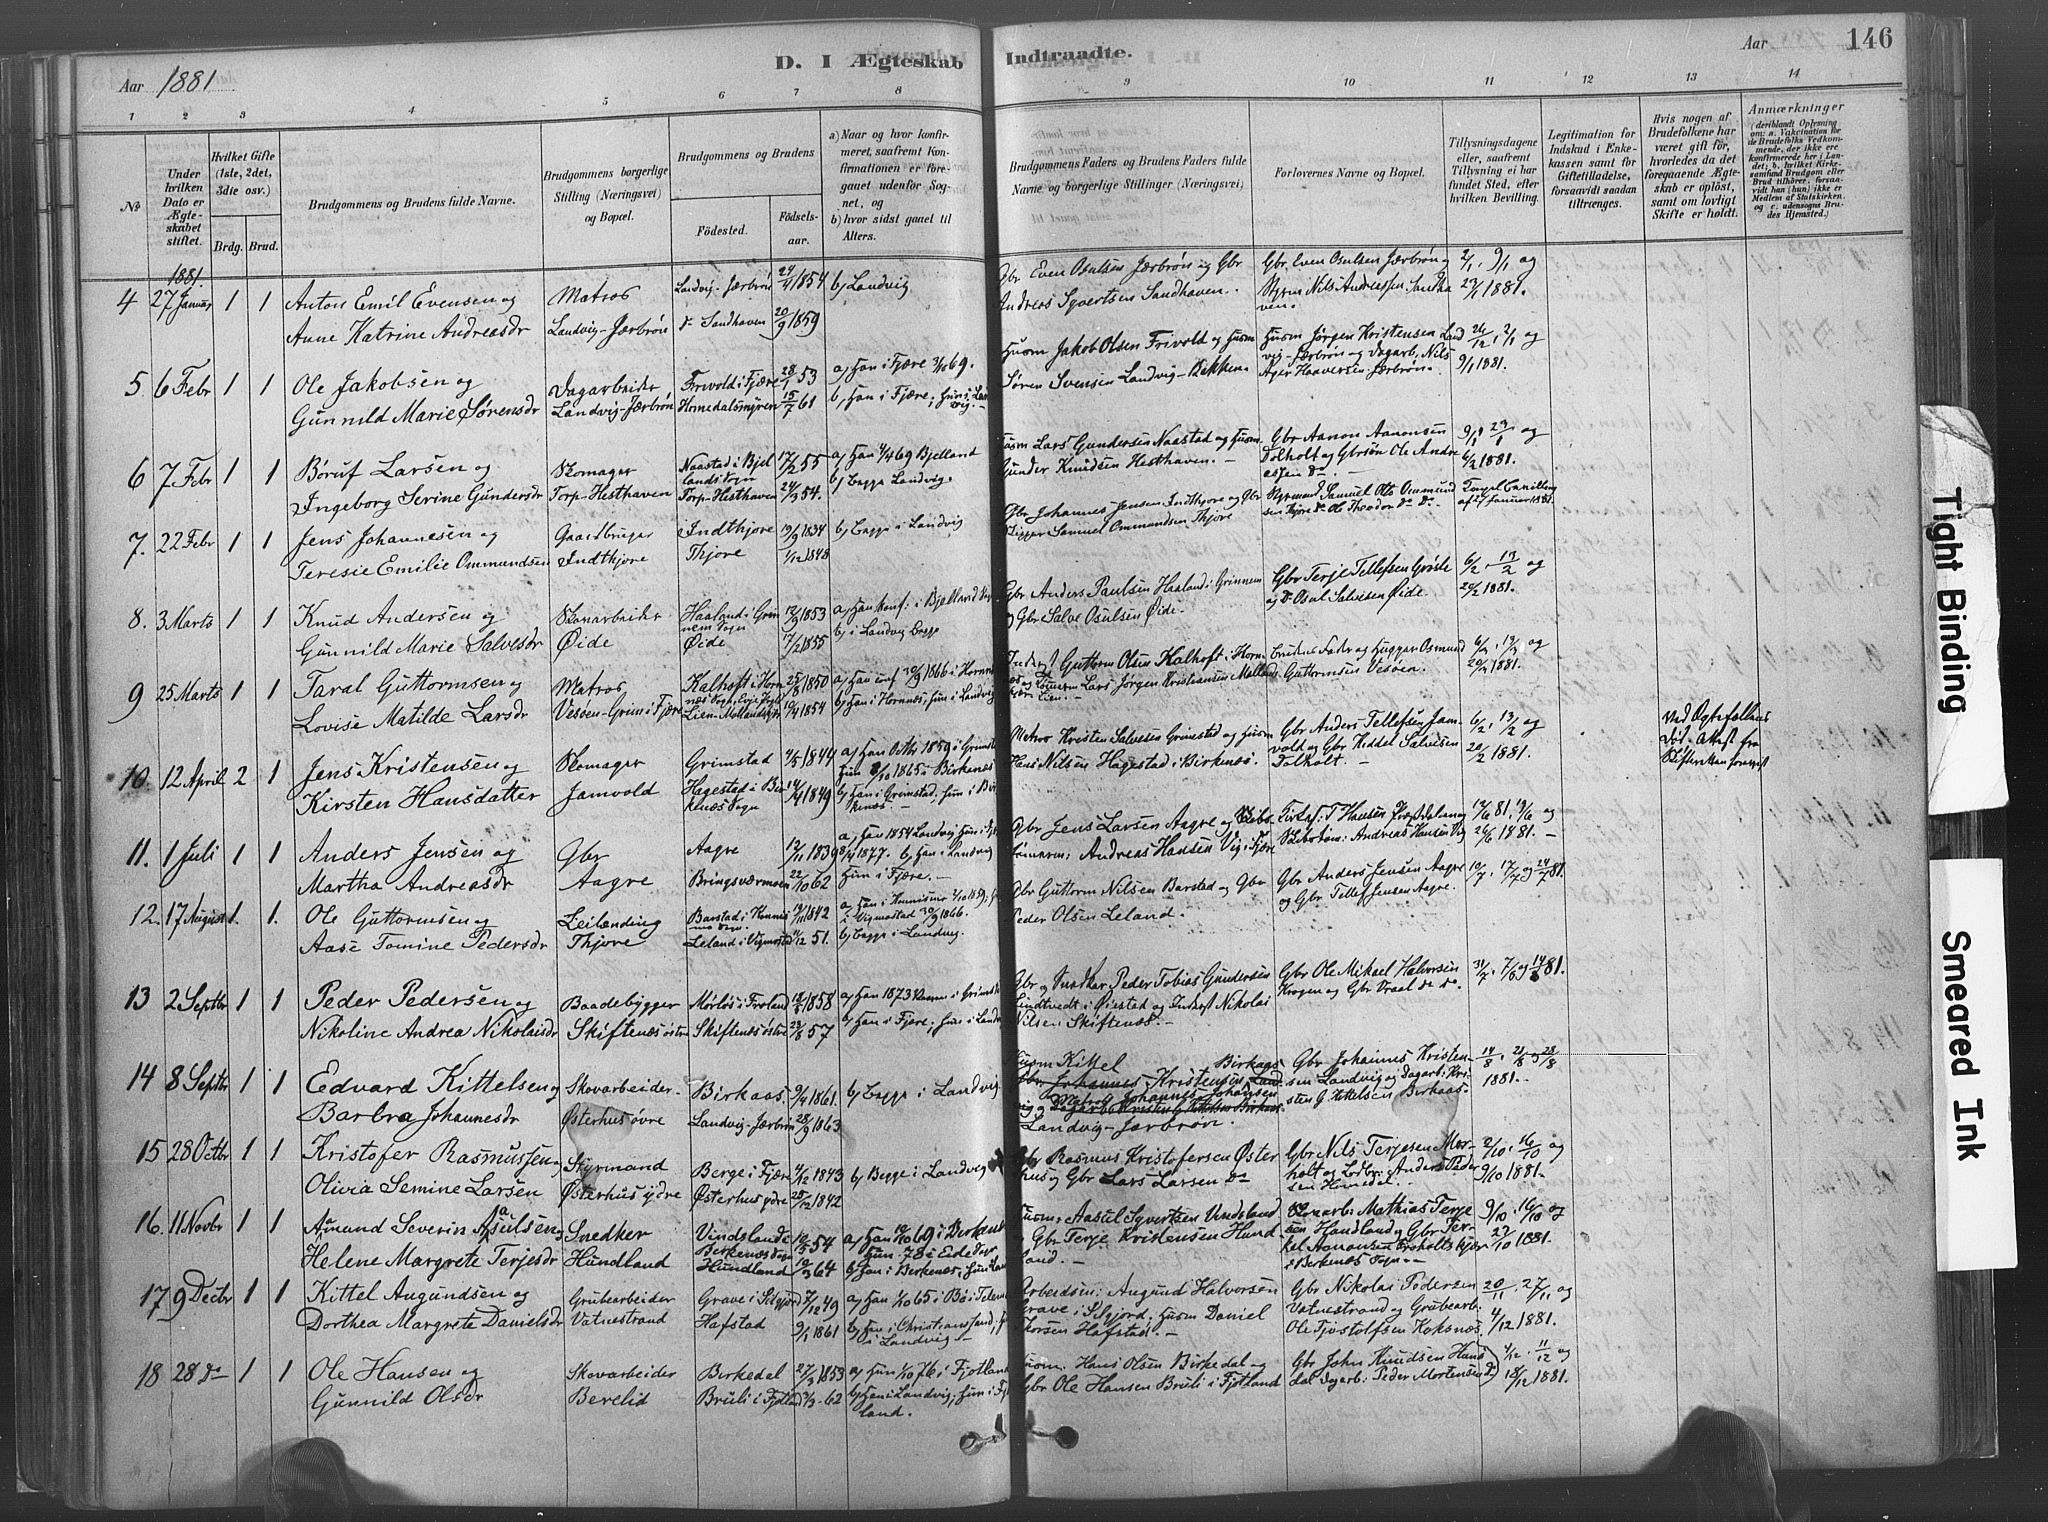 Aar 1881
D. I Ægteskab Indtraadte.
Aar 146
1 2 3 4 5 6 7 8 9 10 11 12 13 14
No
Under hvilken Dato er Ægteskabet stiftet.
Hvilket Gifte (1ste, 2det, 3die osv.)
Brdg. Brud.
Brudgommens og Brudens fulde Navne.
Brudgommens borgerlige Stilling (Næringsvei) og Bopæl.
Brudgommens og Brudens
Fødested. Fødselsaar.
a) Naar og hvor konfirmeret, saafremt Konfirmationen er foregaaet udenfor Sognet, og
b) hvor sidst gaaet til Alters.
Brudgommens Faders og Brudens Faders fulde Navne og borgerlige Stillinger (Næringsvei)
Forlovernes Navne og Bopæl.
Tillysningsdagene eller, saafremt Tillysning ei har fundet Sted, efter hvilken Bevilling.
Legitimation for Indskud i Enkekassen samt for Giftetilladelse, forsaavidt saadan tiltrænges.
Hvis nogen af Brudefolkene har været gift før, hvorledes da det foregaaende Ægteskab er opløst, samt om lovligt Skifte er holdt.
Anmærkninger
(deriblandt Oplysning om: a. Vakcination for de Brudefolks Vedkommende, der ikke ere konfirmerede her i Landet; b. hvilket Kirkesamfund Brudgom eller Brud tilhører, forsaavidt han (hun) ikke er Medlem af Statskirken, og c. udensogns Brudes Hjemsted.)
1881.
4 27 Januar 1 1 Anton Emil Evensen og Matros Landvig-Jærbrøn 24/4 1854 b, Landvig Gbr Even Osulsen Jærbrøn og Gbr Gbr. Even Osulsen Jærbrøn og 2/1, 9/1 og
Anne Katrine Andreasdr Landvig-Jærbrøn do Sandhaven 20/9 1859 Andreas Syvertsen Sandhaven. Styrm Nils Andreassen Sandhaven. 23/1 1881.
5 6 Febr 1 1 Ole Jakobsen og Dagarbeider Frivold i Fjære 28/1 53 a, Han i Fjære 3/10 69. Husm Jakob Olsen Frivold og Husm Husm Jørgen Kristensen Landvig-Jærbrøn og Dagarb. Nils 26/12, 2/1 og
Gunnild Marie Sørensdr Landvig-Jærbrøn Homedalsmyren 15/7 61 b, Han i Fjære; Hun i Landvig.- Søren Svensen Landvig-Bekken. Ager Haaversen Jærbrøn. 9/1 1881.
6 7 Febr 1 1 Børuf Larsen og Skomager Naastad i Bjellands Sogn 17/2 55 a, Han 4/4 69 Bjelland Husm Lars Gundersen Naastad og Husm. Gbr Aanon Aanonsen 9/1, 23/1 og
Ingeborg Serine Gundersdr Torp-Hesthaven Torp-Hesthaven 24/3 54. b, Begge Landvig. Gunder Knudsen Hesthaven. Dolholt og Gbrsøn Ole Andreassen do. 6/2 1881.
7. 22 Febr 1 1 Jens Johannesen og Gaardbruger Indthjore 19/9 1834 b, Begge i Landvig Gbr Johannes Jensen Indthjore og Gbr Styrmand Samuel Ommundsen Thjore do Ole Theodor do do. Kongel. Bevilling af 7 Januar 1881.
Teresie Emilie Ommundsen Indthjore Thjore 1/12 1848 Skipper Samuel Ommundsen Thjore
8. 3 Marts 1 1 Knud Andersen og Skovarbeider Haaland i Grinnem Sogn 12/9 1853 a, Han konf: i Bjelland Gbr Anders Paulsen Haaland i Grinnem Gbr Terje Tellefsen 6/2, 13/2 og
Gunnild Marie Salvesdr Øide Øide 17/2 1855 b, i Landvig Begge og Gbr Salve Osulsen Øide. og do Osul Salvesen Øide. 20/2 1881.
9 25 Marts 1 1 Taral Guttormsen og Matros Kalhoft i Hornnes Sogn 25/8 1850 a, Han conf 30/9 1866 i Hornnes Inderst Guttorm Olsen Kalhoft i Hornnes Brudens Fader og Huggar Osmund 6/3, 13/3 og
Lovise Matilde Larsdr Vesøen-Grim i Fjære Lien 10/4 1854 b, Han i Hornnes, Hun i Landvig Lars Jørgen Kristiansen Lien. Guttormsen Vesøen. 20/3 1881.
10. 12 April 2 1 Jens Kristensen og Skomager Grimstad 4/5 1844 a, Han Octbr 1859 i Grimstad Matros Kristen Salvesen Grimstad og Husm Gbr. Anders Tellefsen Jamvold og Gbr Kiddel Salvesen 6/2, 13/2 og Ved Ægtefællens
Kirsten Hansdatter Jamvold Hagestad i Birkenes Sogn 14/4 1849 Hun 8/10 1865 i Birkenes b, Han i Grimstad, Hun i Birkenæs.- Hans Nilsen Hagestad i Birkenes. Dolholt. 20/2 1881. Død. Attest fra Skifteretten
11. 1 Juli 1 1 Anders Jensen og Gbr Aagre 13/11 1839 a, Han 1854 Landvig Hun i Fjære 1877. b, Han i Landvig Gbr Jens Larsen Aagre og Hansen 12/6 81. 19/6 og
Martha Andreasdr Aagre Bringsværmoen 22/10 62 Hun i Fjære. Andreas Hansen Vig i Fjære Andreas Hansen Vig 26/6 1881. -
12. 17 August 1. 1. Ole Guttormsen og Leilending Barstad 19/11 1842 i Vigmostad 30/9 1866. Gbr Guttorm Nilsen Barstad og Gbr Gbr Anders Jensen Aagre 10/7, 17/7 og 24/7 81.
Aase Tomine Pedersdr Thjore Leland i Vigmostad 11/12 51. b, Begge i Landvig. Peder Olsen Leland. og Gbr Tellef Jensen Aagre.
13 2 Septbr 1 1 Peder Pedersen og Baadebygger Mørløs i Froland 18/8 1858 a, Han 1873 i Grimstad Gbr og Snedker Peder Tobias Gundersen Gbr Ole Mikael Halvorsen 31/7, 7/8 og 14/8 81.
Nikoline Andrea Nikolaisdr Skiftenæs østre Skiftenæs østre 23/8 57 b, Han i Fjære; Hun i Landvig Lindtvedt i Øiestad og Inderst Nikolai Nilsen Skiftenæs. Krogen og Gbr Vraal do do.
14 8 Septbr 1 1 Edvard Kittelsen og Skovarbeider Birkaas 9/4 1861. b, Begge i Landvig Husm Kittel Birkaas Gbr Johannes Kristensen Landvig og Dagarb. Kristen G. Kittelsen Birkaas. 14/8, 21/8 og 28/8
Barbra Johannesdr Østerhus øvre Landvig-Jærbrøn 28/9 1863 Matros Johannes Johansen Landvig-Jærbrøn 1881. -
15 28 Octbr 1 1 Kristofer Rasmussen og Styrmand Berge i Fjære 4/12 1843 b, Begge i Landvig Gbr Rasmus Kristofersen Østerhus og Gbr Lars Larsen do Gbr Nils Terjesen Morholt og Lodbr: Anders Pedersen Homedal. 2/10, 16/10 og
Olivia Semine Larsen Østerhus ydre Østerhus ydre 25/12 1842 9/10 1881.
16. 11 Novbr 1 1 Amund Severin Asulsen og Snedker Vindsland i Birkenæs Sogn 10/5 54 a, Han 10/10 69 i Birkenes Husm: Aastel Syvertsen Vindsland Skovarb: Mathias Terjesen Hundland og Gbr. Terkel Aanonsen 9/10. 16/10 og
Helene Margrete Terjesdr Hundland Hundland 19/3 64 Hun 78 i Eide Sogn b, Han i Birkenæs, Hun Landvig Gbr Terje Kristensen Hundland. i Birkenæs Sogn 23/10 1881.
17 9 Decbr 1 1 Kittel Augundsen og Grubearbeider Grave i Silgjord 7/12 49 a, Han 1/10 65 i Bø i Telemarken Arbeidsm: Augund Halvorsen Gbr Nikolai Pedersen 20/11, 27/11 og
Dorthea Margrete Danielsdr Vatnestrand Hafstad 9/1 1861 b, Han i Christianssand, Hun i Landvig Grave i Silgjord, Husm Daniel Thorsen Hafstad. Vatnestrand og Grubearb. Ole Tjostolfsen Koksnæs. 4/12 1881.
18 28 do 1 1 Ole Hansen og Skovarbeider Birkedal 27/3 1853 a, Hun 1/10 76 i Fjotland Husm: Hans Olsen Birkedal og Gbr John Knudsen 4/12, 11/12 og
Gunnild Olsdr Berelid Bruli i Fjotland 3/3-62 b, Han i Landvig; Hun i Fjotland. Gbr Ole Hansen Bruli i Fjotland Dagarb: Peder Mortensen do 18/12 1881.
Tight Binding
Smeared Ink